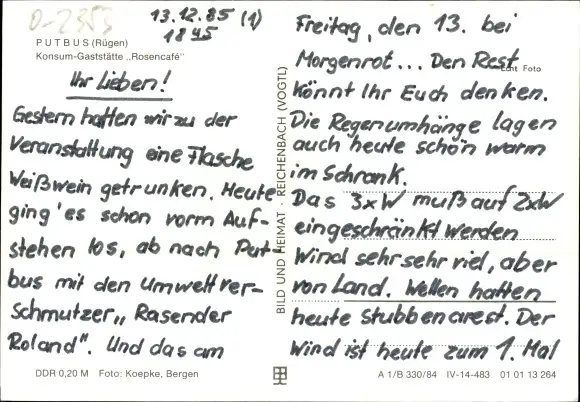 D-2353
13.12.85 (1)
1845
PUTBUS (Rügen)
Konsum-Gaststätte „Rosencafé"
Ihr Lieben!
Gestern hatten wir zu der
Veranstaltung eine Flasche
Weißwein getrunken. Heute
ging'es schon vorm Auf-
stehen los, ab nach Put-
bus mit den Umweltver-
schmutzer„ Rasender
Roland". Und das am
DDR 0,20 M Foto: Koepke, Bergen
BILD UND HEIMAT · REICHENBACH (VOGTL)
Freitag, den 13. bei
Morgenrot... Den Rest
Echt Foto
könnt Ihr Euch denken.
Die Regenumhänge lagen
auch heute schön warm
im Schrank.
Das 3xW muß auf 2xW
eingeschränkt werden
Wind sehr sehr viel, aber
von Land. Wellen hatten
heute Stubbenarest. Der
Wind ist heute zum 1. Mal
A 1/B 330/84 IV-14-483 01 01 13 264